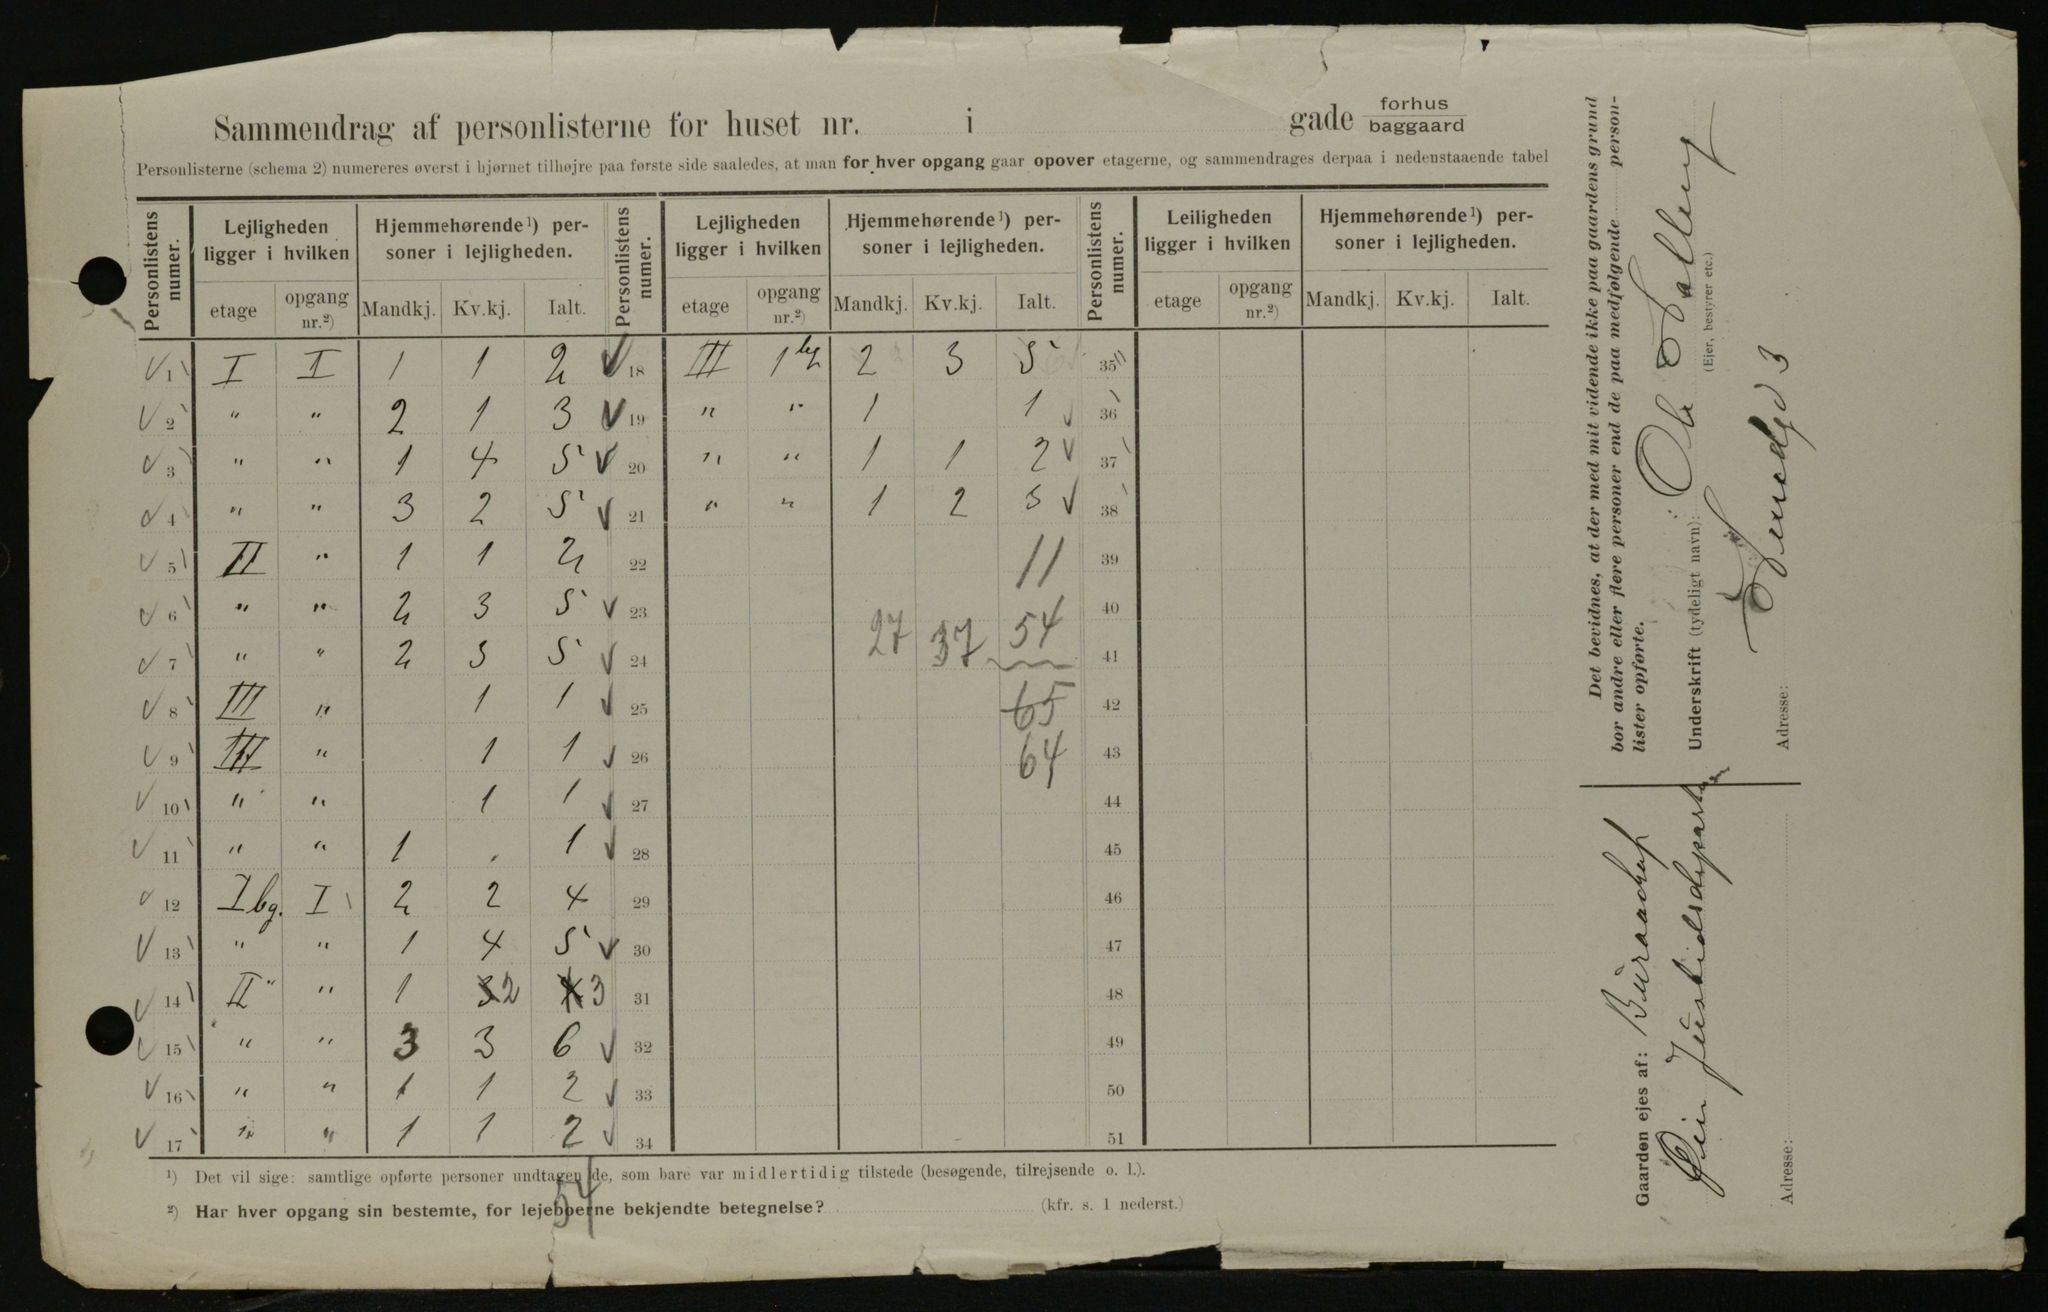 Sammendrag af personlisterne for huset nr. i gade forhus
baggaard
Personlisterne (schema 2) numereres øverst i hjørnet tilhøjre paa første side saaledes, at man for hver opgang gaar opover etagerne, og sammendrages derpaa i nedenstaaende tabel
Personlistens numer. Lejligheden ligger i hvilken Hjemmehørende¹) personer i lejligheden. Personlistens numer. Lejligheden ligger i hvilken Hjemmehørende¹) personer i lejligheden. Personlistens numer. Leiligheden ligger i hvilken Hjemmehørende¹) personer i lejligheden.
etage opgang nr.²) Mandkj. Kv.kj. Ialt. etage opgang nr.²) Mandkj. Kv.kj. Ialt. etage opgang nr.²) Mandkj. Kv.kj. Ialt.
√ 1 I I 1 1 2 √ 18 III 1 bg 2 3 5 35
√ 2 " " 2 1 3 √ 19 " " 1 1 √ 36
√ 3 " " 1 4 5 √ 20 " " 1 1 2 √ 37
√ 4 " " 3 2 5 √ 21 " " 1 2 3 √ 38
√ 5 II " 1 1 2 22 11 39
√ 6 " " 2 3 5 √ 23 40
√ 7 " " 2 3 5 √ 24 27 37 54 41
√ 8 III " 1 1 √ 25 65 42
√ 9 III " 1 1 √ 26 64 43
√ 10 " " 1 1 √ 27 44
√ 11 " " 1 . 1 √ 28 45
√ 12 I bg. I 2 2 4 29 46
√ 13 " " 1 4 5 √ 30 47
√ 14 II " " 1 3 2 4 3 31 48
√ 15 " " 3 3 6 √ 32 49
√ 16 " " 1 1 2 √ 33 50
√ 17 " " 1 1 2 √ 34 51
54
¹) Det vil sige: samtlige opførte personer undtagen de, som bare var midlertidig tilstede (besøgende, tilrejsende o. l.).
²) Har hver opgang sin bestemte, for lejeboerne bekjendte betegnelse? (kfr. s. 1 nederst.)
Det bevidnes, at der med mit vidende ikke paa gaardens grund
bor andre eller flere personer end de paa medfølgende person-
lister opførte.
Underskrift (tydeligt navn): Ole
(Ejer, bestyrer etc.)
Adresse: 3
Gaarden ejes af:
Justitsdepartementet
Adresse: